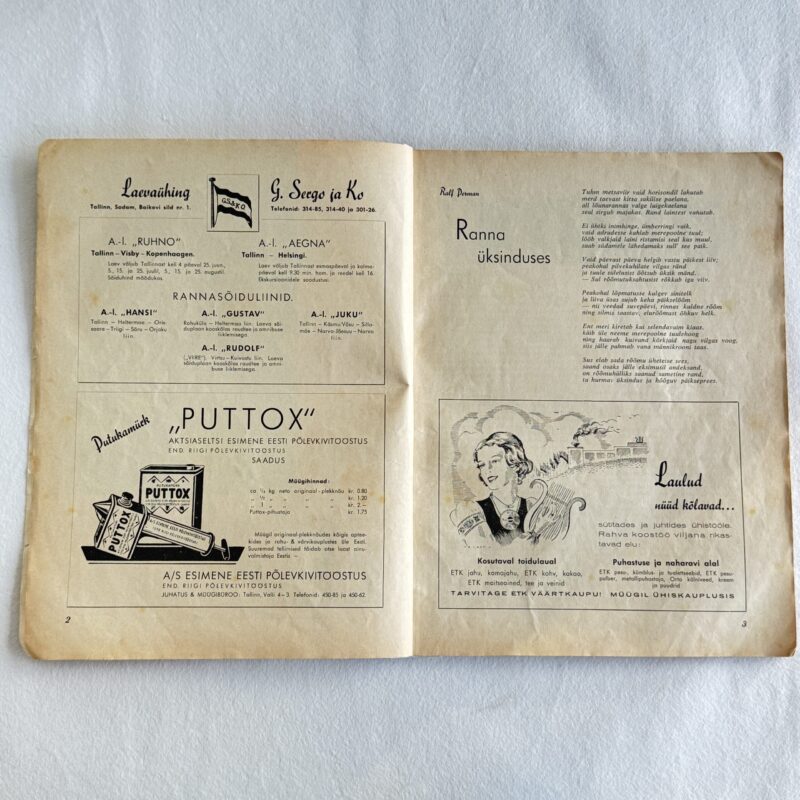 Laevaühing
Tallinn, Sadam, Baikovi sild nr. 1.
G.S.&K.O.
G. Sergo ja Ko
Telefonid: 314-85, 314-40 ja 301-26.
A.-l. „RUHNO"
Tallinn – Visby – Kopenhaagen.
Laev väljub Tallinnast kell 4 p. l. 25. juun.,
5., 15. ja 25. juulil, 5., 15. ja 25. augustil.
Sõiduhind mõõdukas.
A.-l. „AEGNA"
Tallinn – Helsingi.
Laev väljub Tallinnast esmaspäeval ja kolma-
päeval kell 9.30 min. hom. ja reedel kell 16.
Ekskursioonidele soodustusi.
RANNASÕIDULIINID.
A.-l. „HANSI"
Tallinn – Heltermaa – Oris-
saare – Triigi – Sõru – Orjaku
liin.
A.-l. „GUSTAV"
Rohuküla – Heltermaa liin. Laeva sõi-
duplaan kooskõlas raudtee ja omnibuse
liiklemisega.
A.-l. „JUKU"
Tallinn – Käsmu/Võsu – Silla-
mäe – Narva-Jõesuu – Narva
liin.
A.-l. „RUDOLF"
(„VIIRE"). Virtsu – Kuivastu liin. Laeva
sõiduplaan kooskõlas raudtee ja omni-
buse liiklemisega.
Putukamürk
„PUTTOX"
AKTSIASELTSI ESIMENE EESTI PÕLEVKIVITÖÖSTUS
END. RIIGI PÕLEVKIVITÖÖSTUS
SAADUS
Müügihinnad:
ca ¼ kg neto originaal-plekknõu kr. 0.80
„ ½ „ „ „ „ kr. 1.20
„ 1 „ „ „ „ kr. 2.—
Puttox-pihustaja kr. 1.75
PUTTOX
PUTTOX
Müügil originaal-plekknõudes kõigis aptee-
kides ja rohu- & värvikauplustes üle Eesti.
Suuremad tellimised täidab otse laost ainu-
valmistaja Eestis –
A/S ESIMENE EESTI PÕLEVKIVITÖÖSTUS
END. RIIGI PÕLEVKIVITÖÖSTUS
JUHATUS & MÜÜGIBÜROO: Tallinn, Valli 4–3. Telefonid: 450-85 ja 450-62.
2
Ralf Perman
Ranna
üksinduses
Tuhm metsaviir vaid horisondil lahutab
merd taevast kitsa sakilise paelana,
all lõunarannas valge luigekaelana
seal sirgub majakas. Rand lainetel vahutab.
Ei ühtki inimhinge, ümberringi vaik,
vaid adrudesse kuhtub merepoolne tuul;
lööb valkjaid laini ristamisi seal kus muul,
saab südamele lähedamaks sull' see paik.
Vaid päevast päeva helgib vastu päikest liiv;
peakohal pilvekuhilate vilgas ränd
ja tuule tülelustist õõtsub üksik mänd.
– Sul rõõmutuksahtusist rõkkab iga viiv.
Peakohal lõpmatusse kulgev sinitelk
ja liiva sües sajab keha päikseläõm
– nii veedad suvepäevi, rinnas kuldne rõõm
ning silmis taastuv, elurõõmust õhkuv helk.
Ent meri kiretab kui selendavaim klaas,
käib üle neeme merepoolne tuulehoog
ning haarab kuivand kõrkjaid nagu vilgas voog,
siis jälle pahmab vana männikrooni taas.
Sus elab soda rõõmu üheteise sees,
saand osaks jälle eksimusil andeksand,
on rõõmuhällsiks saanud sametine rand,
ta hurmav üksindus ja hõõguv päikseprees.
Laulud
nüüd kõlavad...
sütitades ja juhtides ühistööle.
Rahva koostöö viljana rikas-
tavad elu:
Kosutaval toidulaual
ETK jahu, kamajahu, ETK kohv, kakao,
ETK maitseained, tee ja veinid
Puhastuse ja naharavi alal
ETK pesu-, kümblus- ja tualettseebid, ETK pesu-
pulver, metallipuhastaja, Orto kölniveed, kreem
ja puudrid
TARVITAGE ETK VÄÄRTKAUPU! MÜÜGIL ÜHISKAUPLUSIS
3